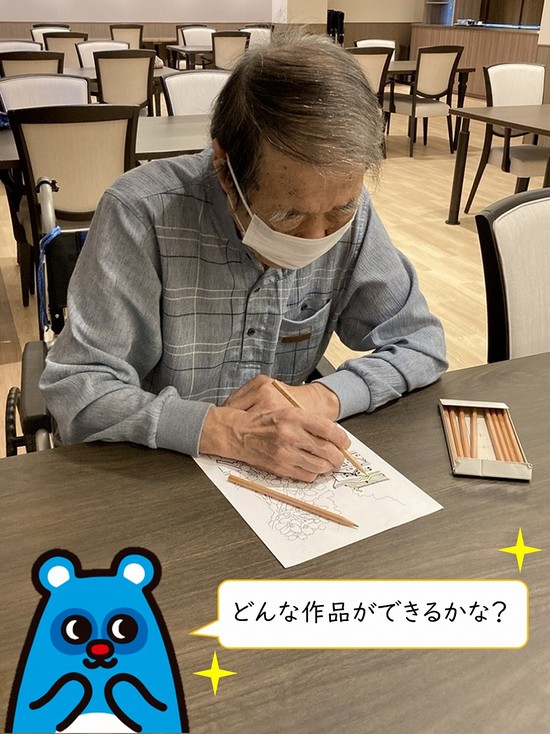 どんな作品ができるかな?